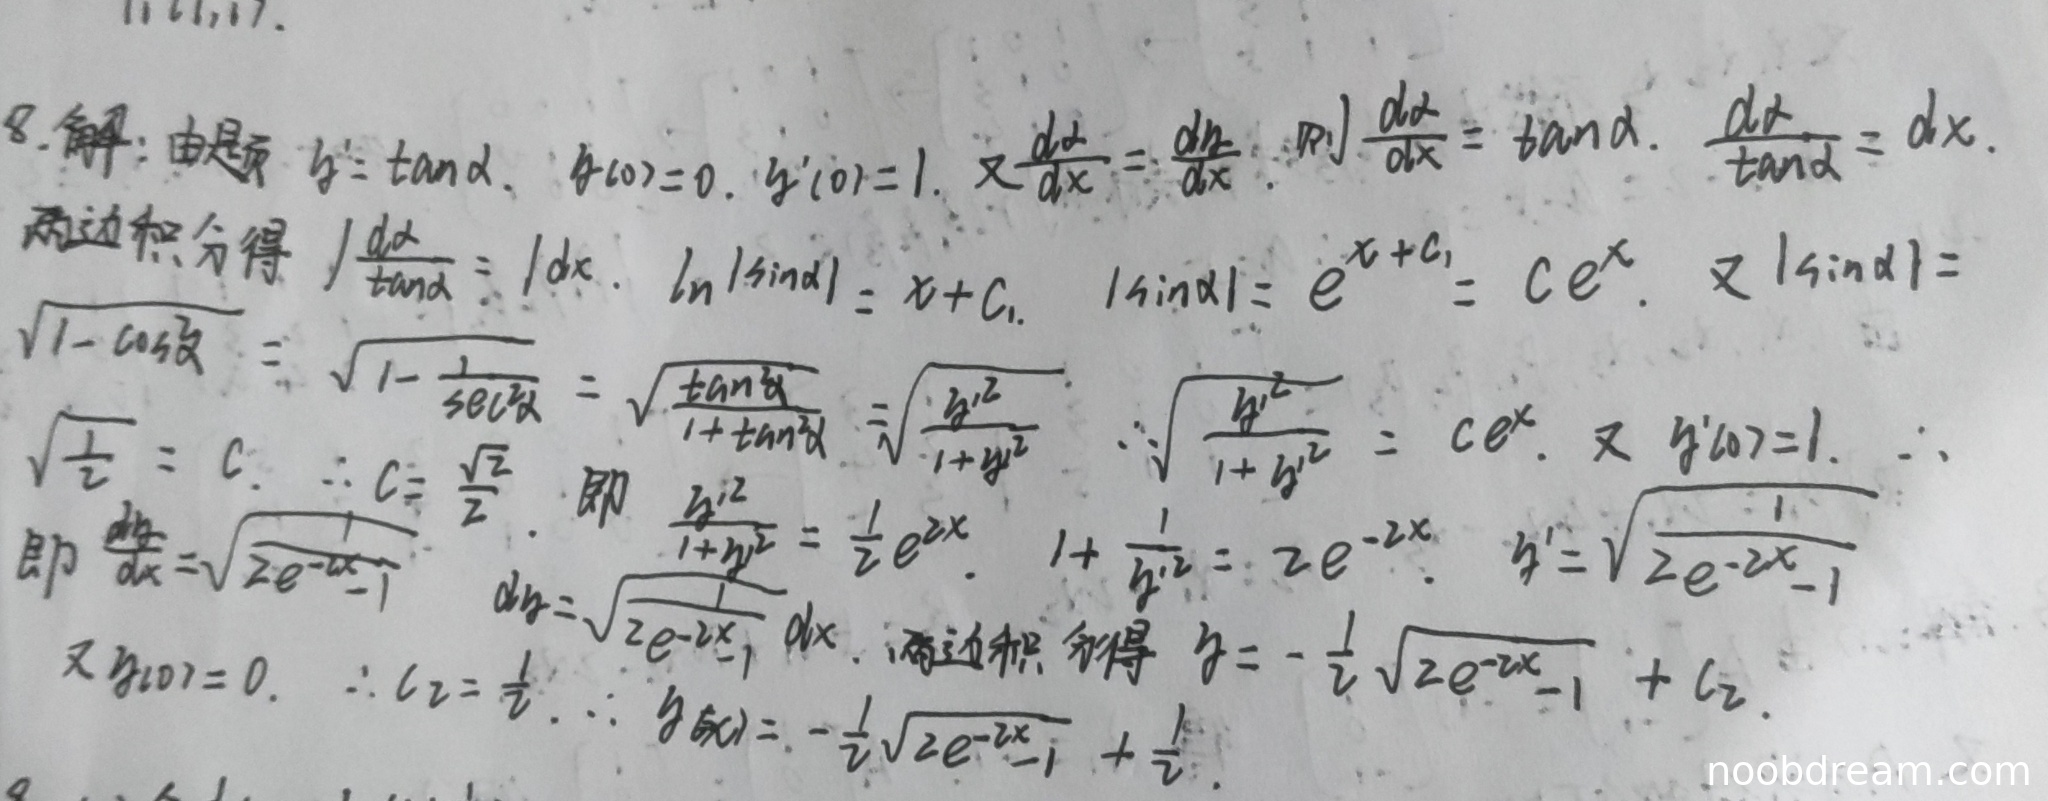 8.解:由题 y'=tanα. y(0)=0. y'(0)=1. 又 dα/dx = dy/dx. 则 dα/dx = tanα. dα/tanα = dx.
两边积分得 ∫dα/tanα = ∫dx. ln|sinα| = x+C₁. |sinα| = e^(x+C₁) = Ce^x. 又 |sinα| =
√(1-cos²α) = √(1-1/sec²α) = √(tan²α/(1+tan²α)) = √(y'²/(1+y'²)) ∴ √(y'²/(1+y'²)) = Ce^x. 又 y'(0)=1. ∴
√(1/2) = C. ∴ C = √2/2. 即 y'²/(1+y'²) = 1/2 e^(2x). 1+1/y'² = 2e^(-2x). y' = √(1/(2e^(-2x)-1))
即 dy/dx = √(1/(2e^(-2x)-1)) dy = √(1/(2e^(-2x)-1)) dx. 两边积分得 y = -1/2 √(2e^(-2x)-1) + C₂.
又 y(0)=0. ∴ C₂ = 1/2. ∴ y(x) = -1/2 √(2e^(-2x)-1) + 1/2.
noobdream.com